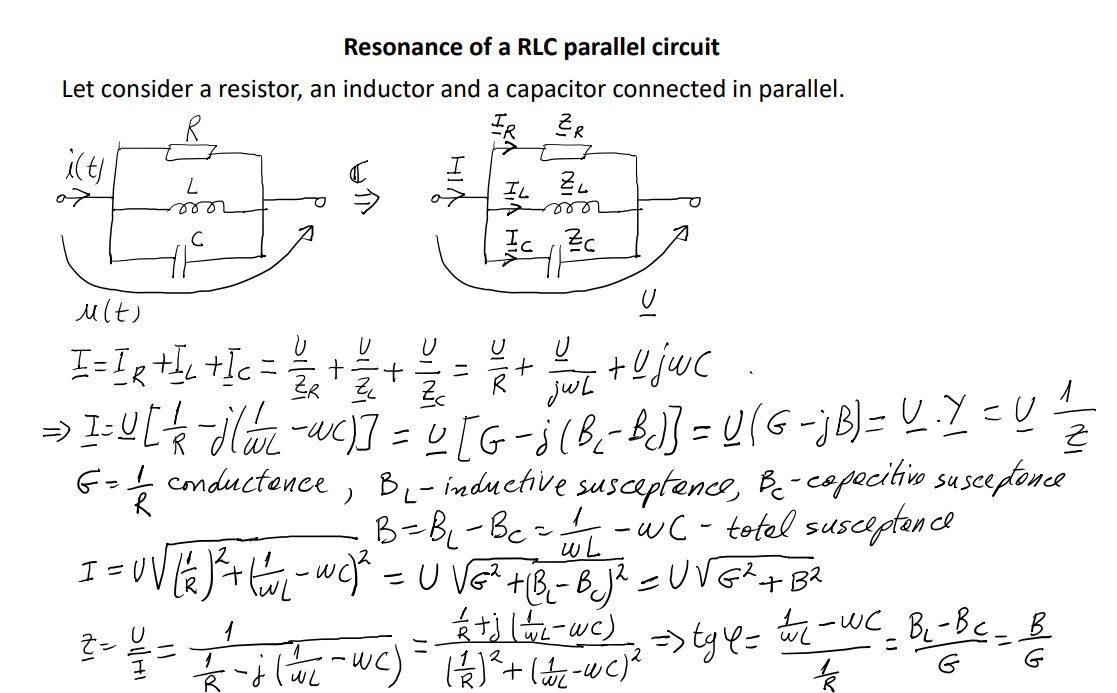 Resonance of a RLC parallel circuit
Let consider a resistor, an inductor and a capacitor connected in parallel.
R
i(t)
L
C
u(t)
ℂ
⇒
I
I_R Z_R
I_L Z_L
I_C Z_C
U
I = I_R + I_L + I_C = U/Z_R + U/Z_L + U/Z_C = U/R + U/jωL + UjωC
⇒ I = U[1/R - j(1/ωL - ωC)] = U[G - j(B_L - B_C)] = U(G - jB) = U.Y = U 1/Z
G = 1/R conductance, B_L - inductive susceptance, B_C - capacitive susceptance
B = B_L - B_C = 1/ωL - ωC - total susceptance
I = U√((1/R)² + (1/ωL - ωC)²) = U√(G² + (B_L - B_C)²) = U√(G² + B²)
Z = U/I = 1/(1/R - j(1/ωL - ωC)) = (1/R + j(1/ωL - ωC))/((1/R)² + (1/ωL - ωC)²) ⇒ tgφ = (1/ωL - ωC)/(1/R) = (B_L - B_C)/G = B/G